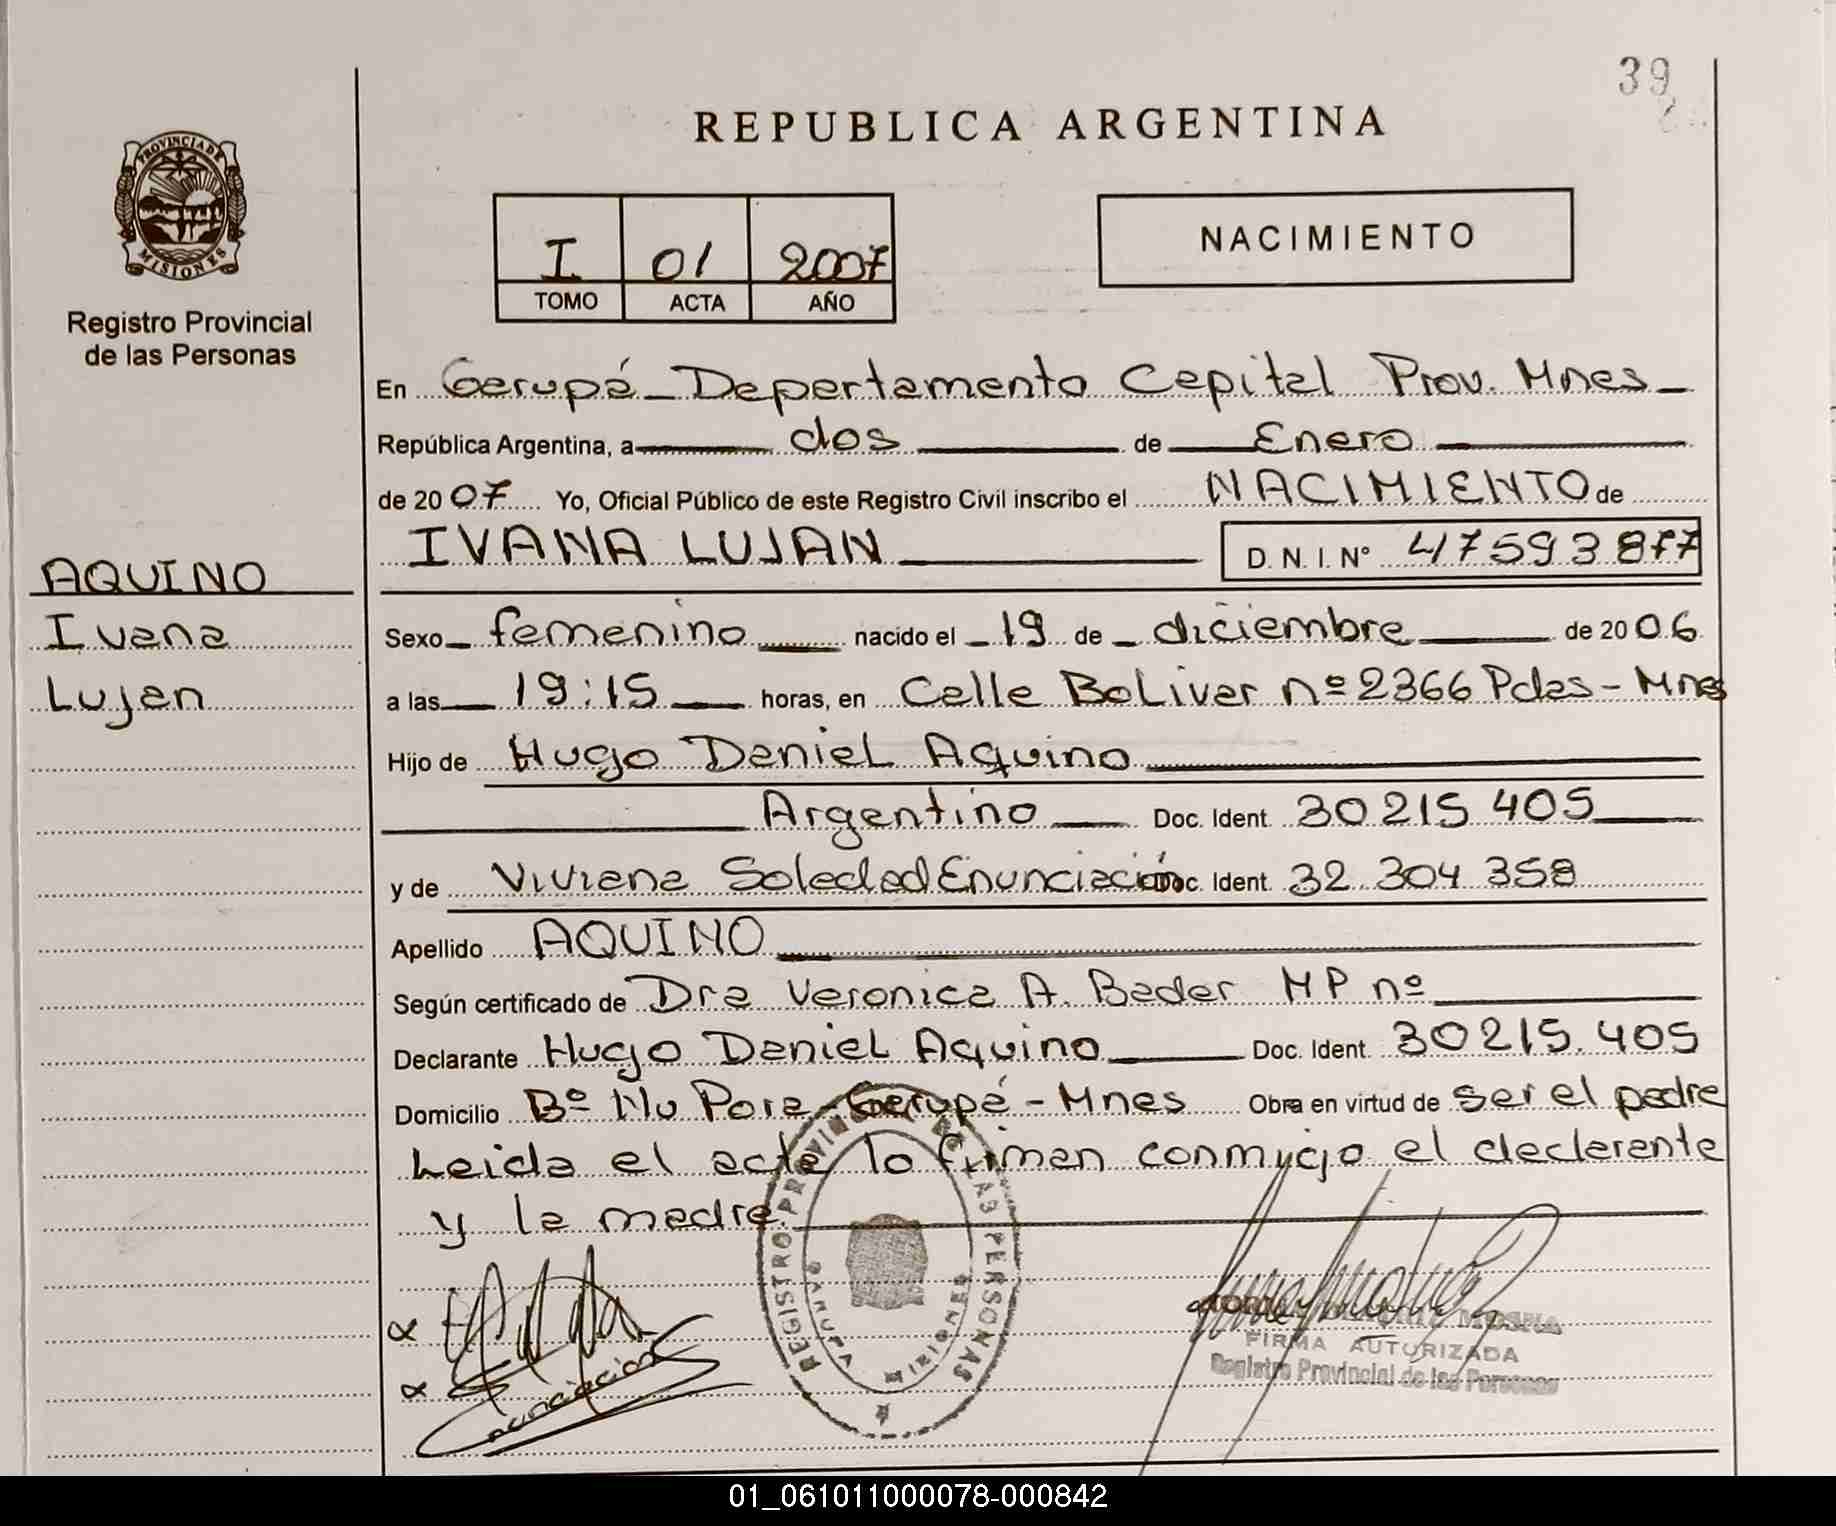 39
REPUBLICA ARGENTINA
PROVINCIA DE
MISIONES
Registro Provincial
de las Personas
I 01 2007
TOMO ACTA AÑO
NACIMIENTO
En Garupá - Departamento Capital Prov. Mnes -
República Argentina, a dos de Enero
de 2007 Yo, Oficial Público de este Registro Civil inscribo el NACIMIENTO de
IVANA LUJAN D. N. I. Nº 47593877
AQUINO
Ivana
Lujan
Sexo femenino nacido el 19 de diciembre de 2006
a las 19:15 horas, en Calle BoLivar nº 2366 Pdas - Mnes
Hijo de Hugo DanieL Aquino
Argentino Doc. Ident. 30 215 405
y de Viviana Soledad Enunciación Doc. Ident. 32 304 358
Apellido AQUINO
Según certificado de Dra Veronica A. Bader MP nº
Declarante Hugo DanieL Aquino Doc. Ident. 30215.405
Domicilio Bº Ñu Pora - Garupá - Mnes Obra en virtud de ser el padre
Leida el acta lo firman conmigo el declarante
y la madre.
REGISTRO PROVINCIAL DE LAS PERSONAS
GARUPA MISIONES
Enunciacion
FIRMA AUTORIZADA
Registro Provincial de las Personas
01_061011000078-000842